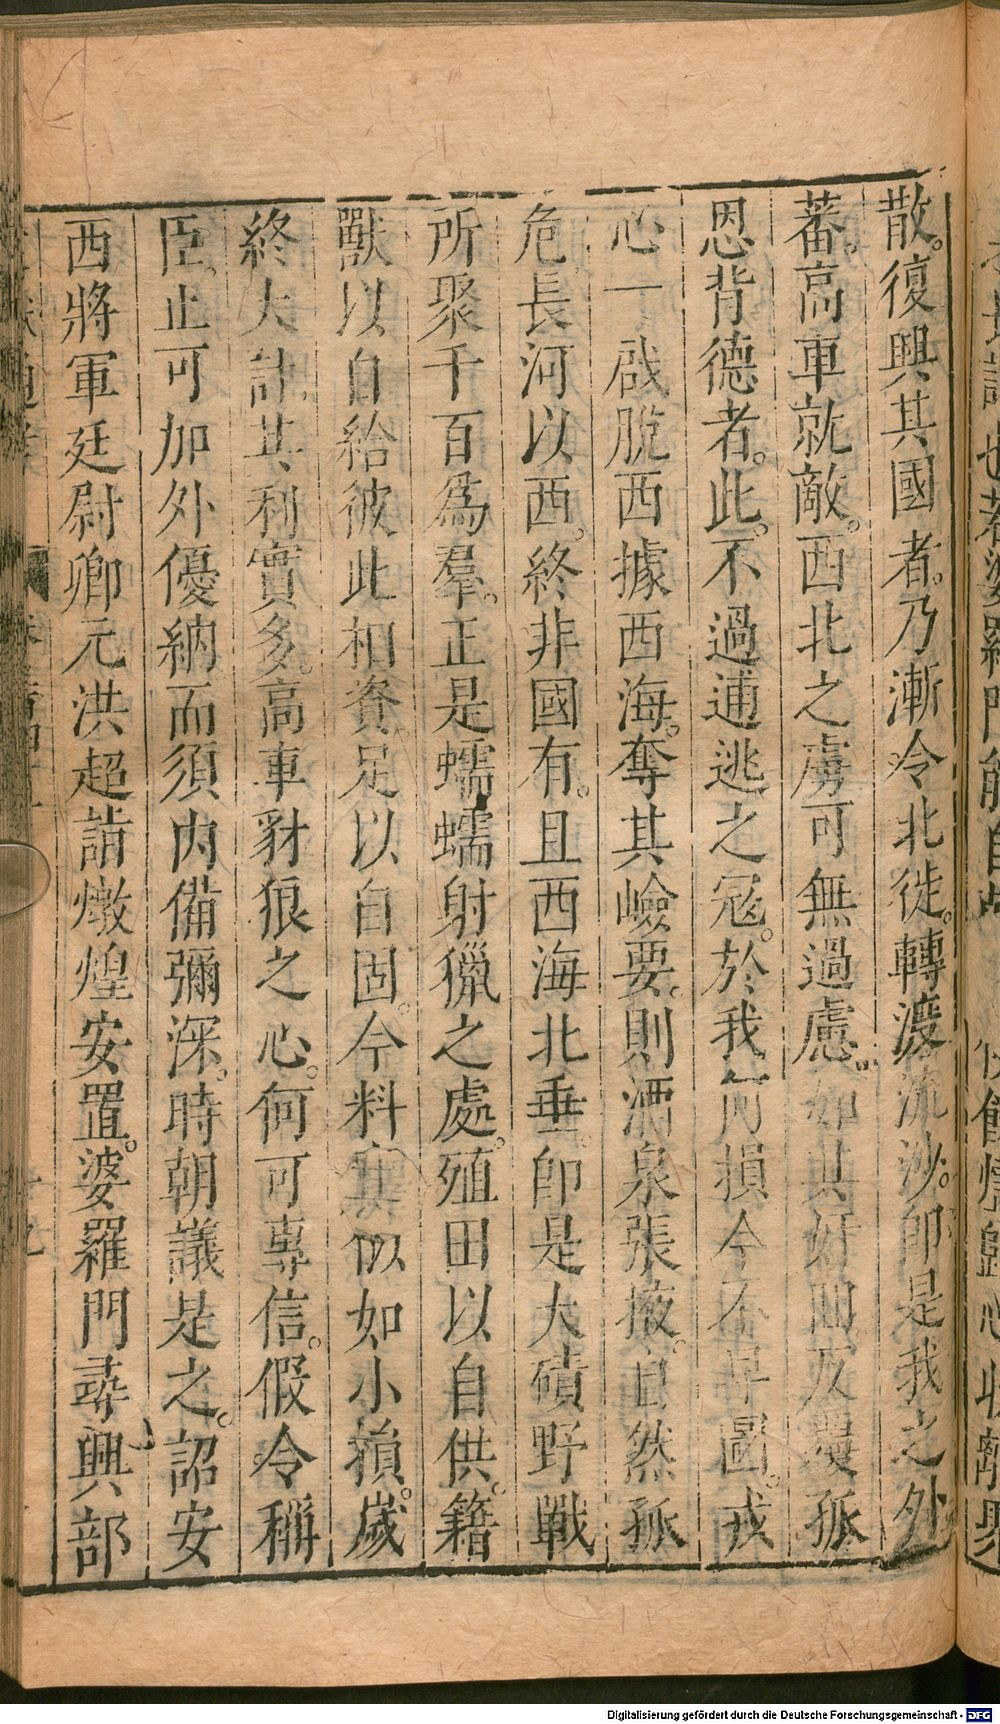 散。復興其國者。乃漸令北徙。轉渡流沙。即是我之外
蕃。高車就敵。西北之虜可無過慮。如其奸回反覆孤
恩背德者。此。不過逋逃之寇。於我何損今不早圖。戎
心一啟脫西據西海。奪其嶮要。則酒泉張掖。自然孤
危。長河以西。終非國有。且西海北垂。即是大磧野戰
所聚千百為羣。正是蠕蠕射獵之處。殖田以自供。籍
獸以自給彼此相資足以自固。今料其似如小損。歲
終大計其利實多。高車豺狼之心。何可專信。假令稱
臣。止可加外優納而須內備彌深。時朝議是之。詔安
西將軍廷尉卿元洪超詣燉煌安置。婆羅門尋興部
Digitalisierung gefördert durch die Deutsche Forschungsgemeinschaft - DFG